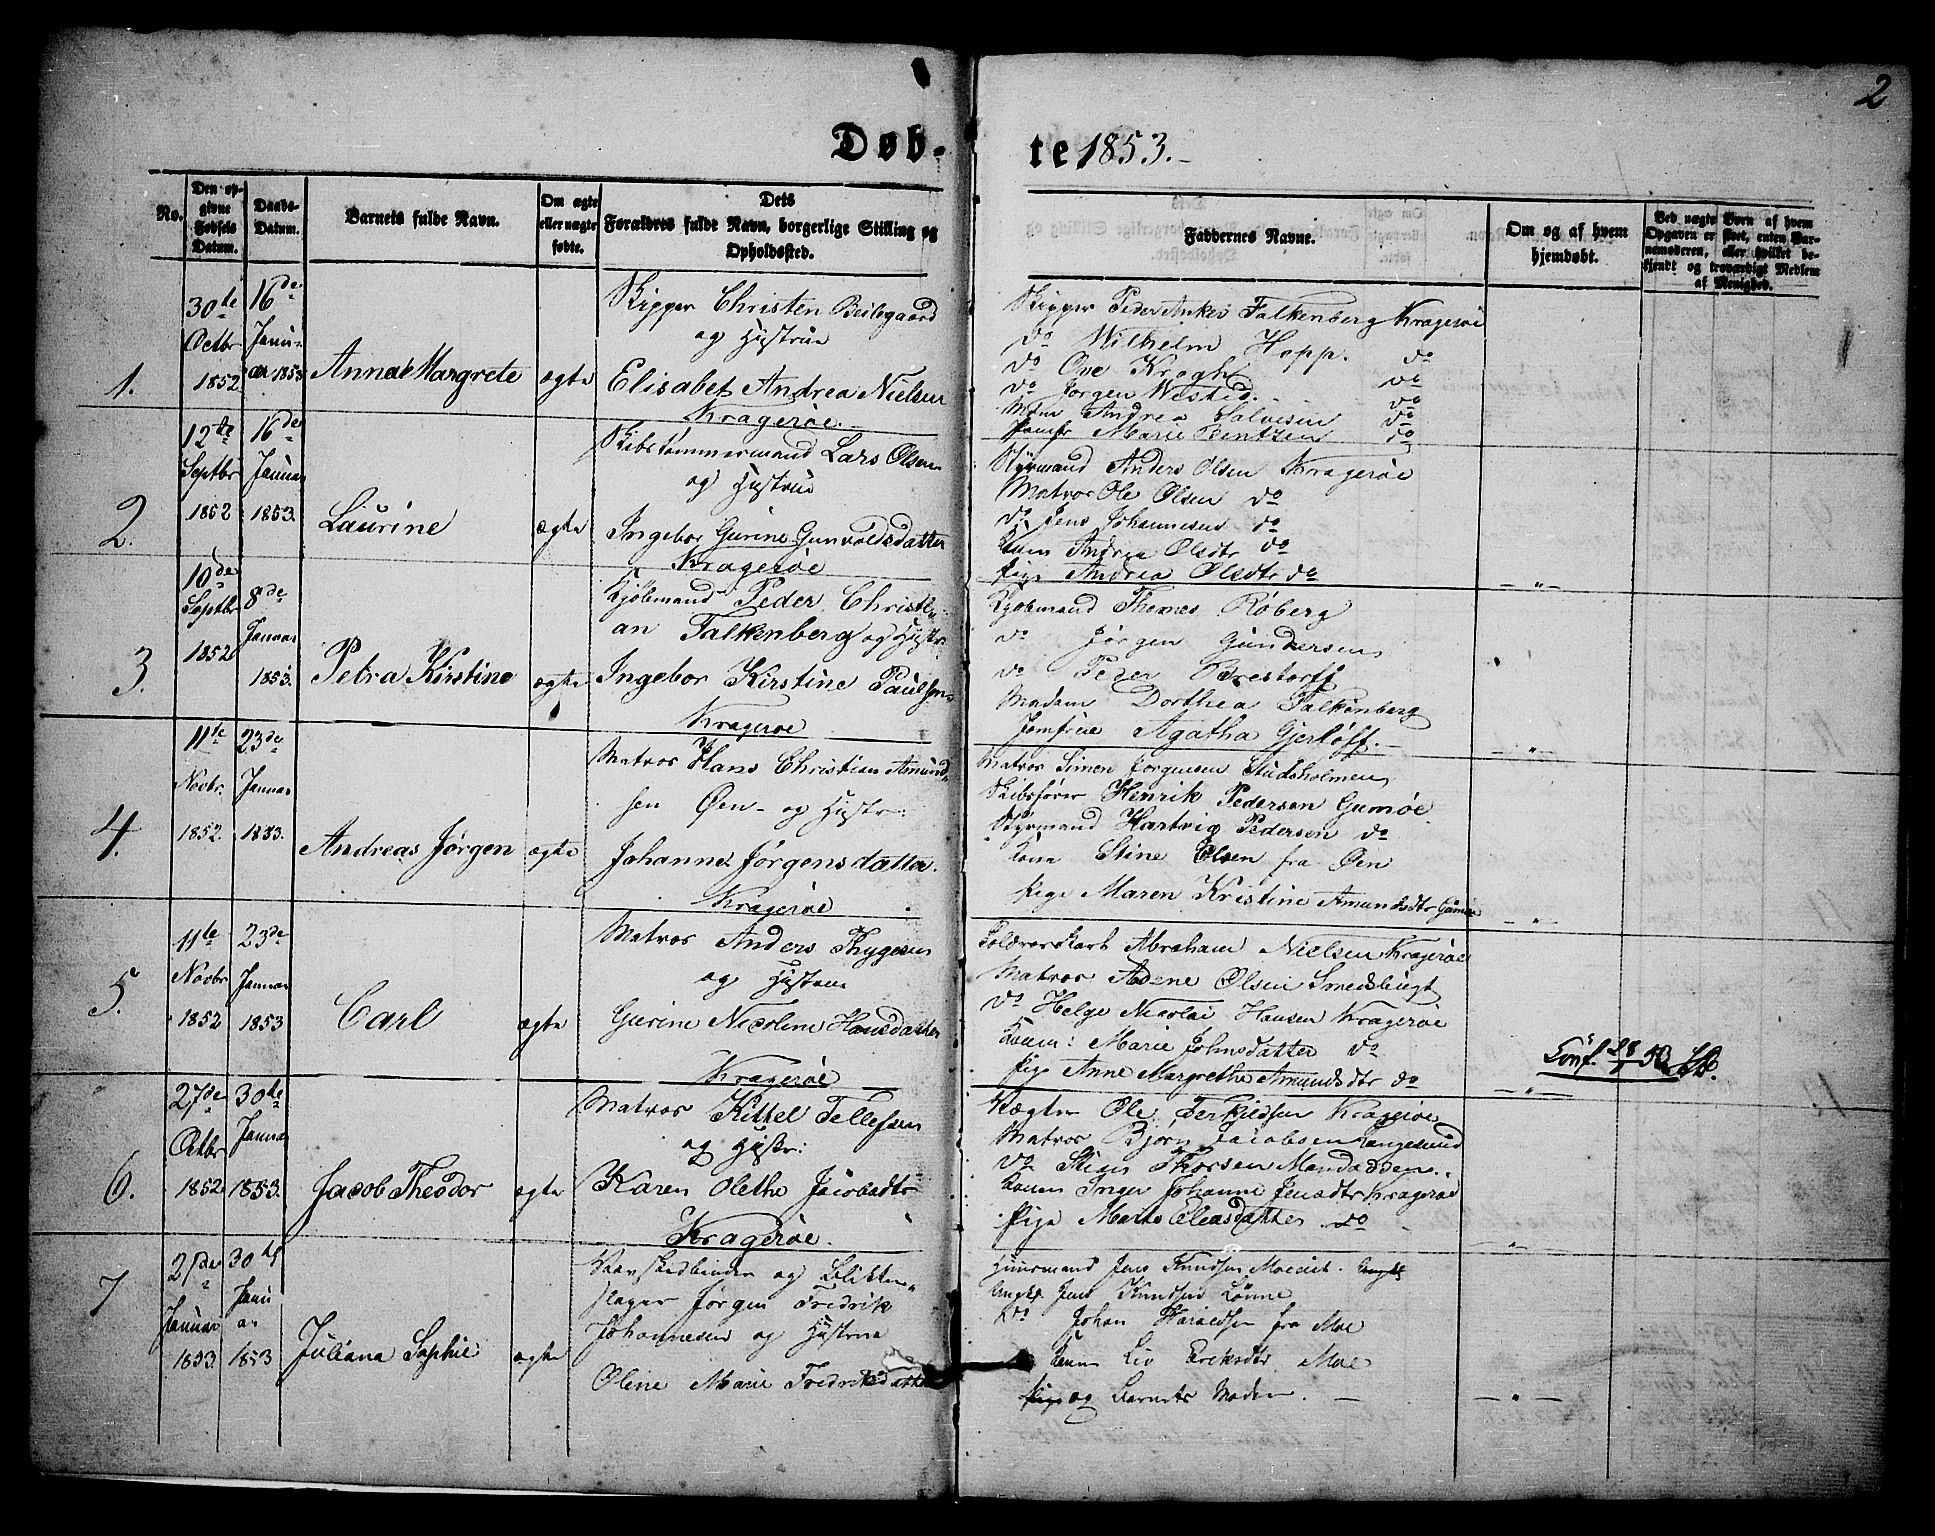 2
Døb-
te 1853.-
No.
Den op-
givne
Fødsels
Datum.
Daabs-
Datum.
Barnets fulde Navn.
Om ægte
eller uægte
fødte.
Dets
Forældres fulde Navn, borgerlige Stilling og
Opholdssted.
Faddernes Navne.
Om og af hvem
hjemdøbt.
Ved uægte Børn af hvem
Opgaven er skeet, enten Bar-
nemoderen, eller hvilket be-
kjendt og troværdigt Medlem
af Menighed.
1.
30te
Octbr
1852
16de
Janu-
ar 1853
Anna Margrete
ægte
Skipper Christen Beilegaard
og Hustrue
Elisabet Andrea Nielsen
Kragerøe.
Skipper Peder Anker Falkenberg Kragerøe
do Wilhelm Hopp. do
do Ove Krogh do
do Jørgen Wested. do
Mdm Andrea Salvesen do
Jomfr Marie Bentzen do
2.
12te
Septbr
1852
16de
Januar
1853.
Laurine
ægte
Skibstømmermand Lars Olsen
og Hustrue
Ingebor Gurine Gunvoldsdatter
Kragerøe
Styrmand Anders Olsen Kragerøe
Matros Ole Olsen do
do Jens Johannesen do
Konen Andrea Olsdtr do
Pige Andrea Olsdtr do
3.
10de
Septbr
1852
8de
Januar
1853.
Petra Kirstine
ægte
Kjøbmand Peder Christi-
an Falkenberg og Hustr
Ingebor Kirstine Paulsen
Kragerøe
Kjøbmand Thomes Røberg
do Jørgen Gundersen
do Peder Brestorff
Madam Dorthea Falkenberg
Jomfrue Agatha Gjerløff.
4.
11te
Novbr.
1852.
23de
Januar
1853.
Andreas Jørgen
ægte
Matros Hans Christian Amund-
sen Øen - og Hustr:
Johanne Jørgensdatter.
Kragerøe
Matros Simen Jørgensen Studsholmen
Skibsfører Henrik Pedersen Gumøe
Styrmand Hartvig Pedersen do
Kone Stine Olsen fra Øen
Pige Maren Kristine Amundsdtr Gumøe
5.
11te
Novbr
1852
23de
Januar
1853
Carl
ægte
Matros Anders Thygesen
og Hustrue
Gurine Nicoline Hansdatter
Kragerøe
Abraham Nielsen Kragerøe
Matros Adene Olsen Smedsbugt
do Helge Nicolai Hansen Kragerøe
Konen: Marie Johnsdatter do
Pige Anne Margrethe Amundsdtr do
6.
27de
Octbr
1852
30te
Januar
1853.
Jacob Theodor
ægte
Matros Kittel Tellefsen
og Hustr:
Karen Olethe Jacobsdtr
Kragerøe.
Vægter Ole Terkildsen Kragerøe
Matros Bjørn Jacobsen Langesund
do Thorsen
Konen Inger Johanne Jensdtr Kragerøe
Pige Marte Eleasdatter do
7
27de
Januar
1853.
30te
Janu
ar
1853
Juliana Sophie
ægte
og Blikken-
slager Jørgen Fredrik
Johannesen og Hustrue
Oline Marie Fredriksdatter
Huusmand Jens Knudsen
Ungkl. Jens Knudsen Lønne
do Johan Haraldsen fra Moe
Konen Liv Eriksdtr Moe
og Barnets Moder.